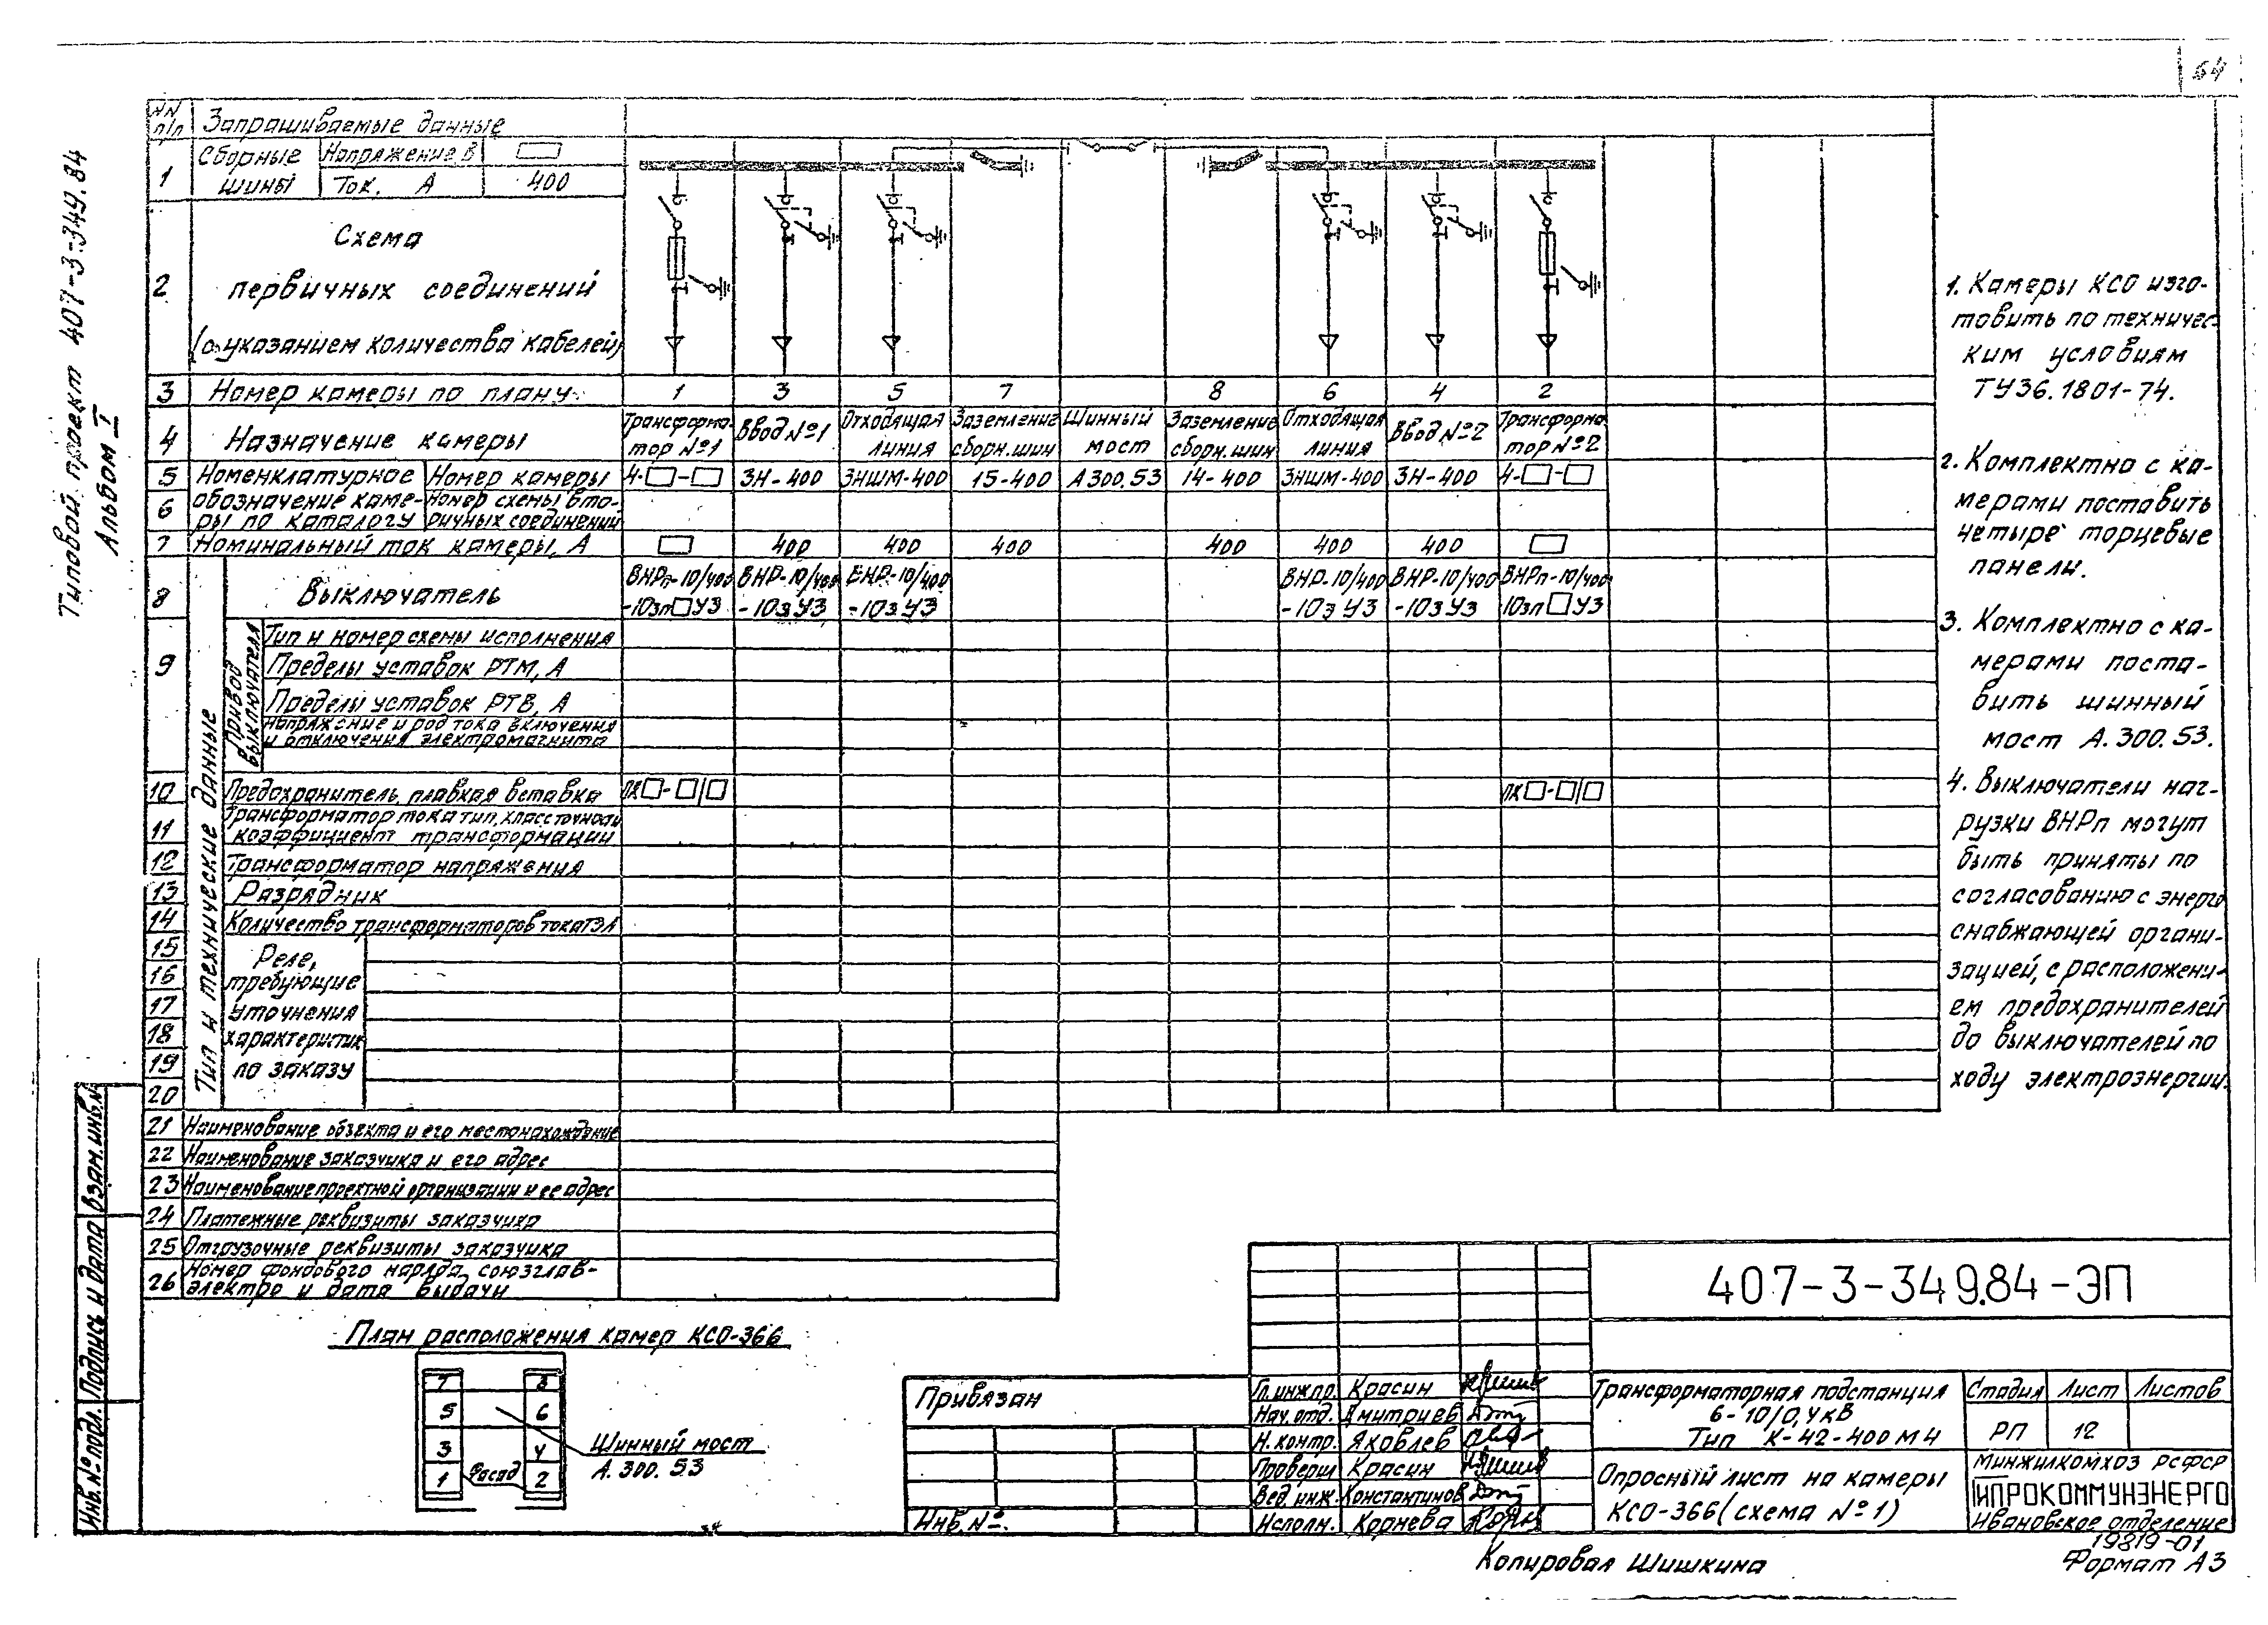 64
Типовой проект 407-3-349.84
Альбом I
NN п/п
Запрашиваемые данные
1
Сборные шины
Напряжение В
Ток. А
400
2
Схема
первичных соединений
(с указанием количества кабелей)
3 Номер камеры по плану 1 3 5 7 8 6 4 2
4 Назначение камеры
Трансформатор №1
Ввод №1
Отходящая линия
Заземление сборн. шин
Шинный мост
Заземление сборн. шин
Отходящая линия
Ввод №2
Трансформатор №2
5 Номенклатурное Номер камеры 4-□-□ 3Н-400 3НШМ-400 15-400 А300.53 14-400 3НШМ-400 3Н-400 4-□-□
6 обозначение каме- Номер схемы вто-
ры по каталогу ричных соединений
7 Номинальный ток камеры, А □ 400 400 400 400 400 400 □
8 Выключатель
ВНРп-10/400 ВНР-10/400 ВНР-10/400 ВНР-10/400 ВНР-10/400 ВНРп-10/400
-10зп□У3 -10зУ3 -10зУ3 -10зУ3 -10зУ3 10зп□У3
Тип и технические данные
9
Привод выключателя
Тип и номер схемы исполнения
Пределы уставок РТМ, А
Пределы уставок РТВ, А
Напряжение и род тока включения
и отключения электромагнита
10 Предохранитель, плавкая вставка ПК□-□/□ ПК□-□/□
11 Трансформатор тока тип, класс точности
коэффициент трансформации
12 Трансформатор напряжения
13 Разрядник
14 Количество трансформаторов тока ТЗЛ
15
16
17
18
19
20
Реле,
требующие
уточнения
характеристик
по заказу
21 Наименование объекта и его местонахождение
22 Наименование заказчика и его адрес
23 Наименование проектной организации и ее адрес
24 Платежные реквизиты заказчика
25 Отгрузочные реквизиты заказчика
26 Номер фондового наряда союзглав-
электро и дата выдачи
1. Камеры КСО изго-
товить по техничес-
ким условиям
ТУ36.1801-74.
2. Комплектно с ка-
мерами поставить
четыре торцевые
панели.
3. Комплектно с ка-
мерами поста-
вить шинный
мост А.300.53.
4. Выключатели наг-
рузки ВНРп могут
быть приняты по
согласованию с энерго
снабжающей органи-
зацией, с расположени-
ем предохранителей
до выключателей по
ходу электроэнергии.
План расположения камер КСО-366
7 8
5 6
3 4
1 Фасад 2
Шинный мост
А.300.53
Инв.№ подл.
Подпись и дата
Взам.инв.№
Привязан
Инв.№.
Гл.инж.пр. Красин
Нач.отд. Дмитриев
Н.контр. Яковлев
Проверил Красин
Вед.инж. Константинов
Исполн. Корнева
407-3-349.84-ЭП
Трансформаторная подстанция
6-10/0,4кВ
Тип К-42-400М4
Стадия Лист Листов
РП 12
Опросный лист на камеры
КСО-366 (схема №1)
Минжилкомхоз РСФСР
ГИПРОКОММУНЭНЕРГО
Ивановское отделение
19819-01
Копировал Шишкина
Формат А3